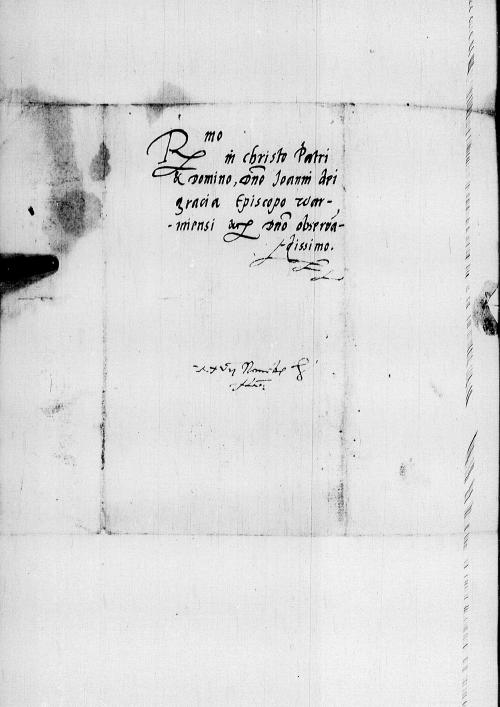 Rmo
in christo Patri
& Domino, Dno Joanni dei
gracia Episcopo War-
-miensi etc Dno observa-
dissimo.